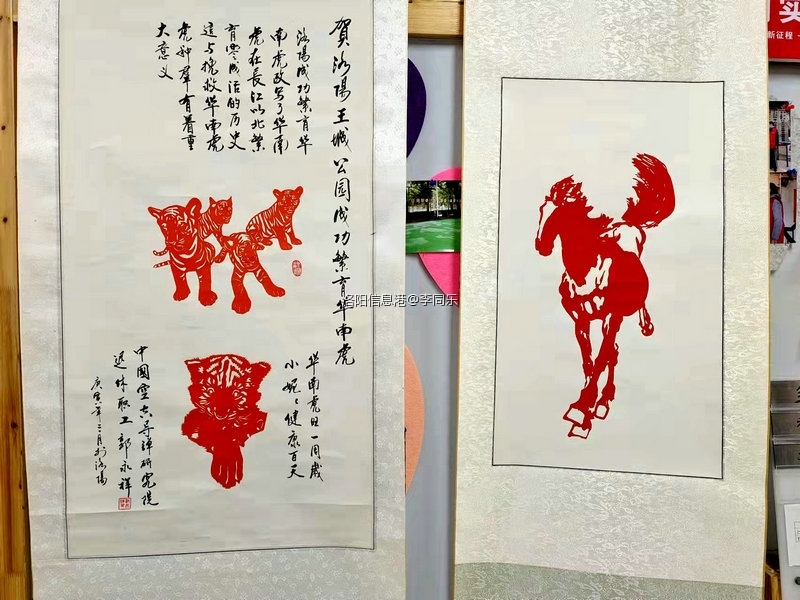 賀洛陽王城公园成功繁育华南虎
洛陽成功繁育华
南虎改写了华南
虎在長江以北繁
育零成活的历史
这与挽救华南虎
虎种羣有着重
大意义
华南虎旦一周岁
小妮妮健康百天
中國空空导弹研究院
退休职工郭永祥
庚寅年二月于洛陽
洛阳信息港@李同乐
新征程